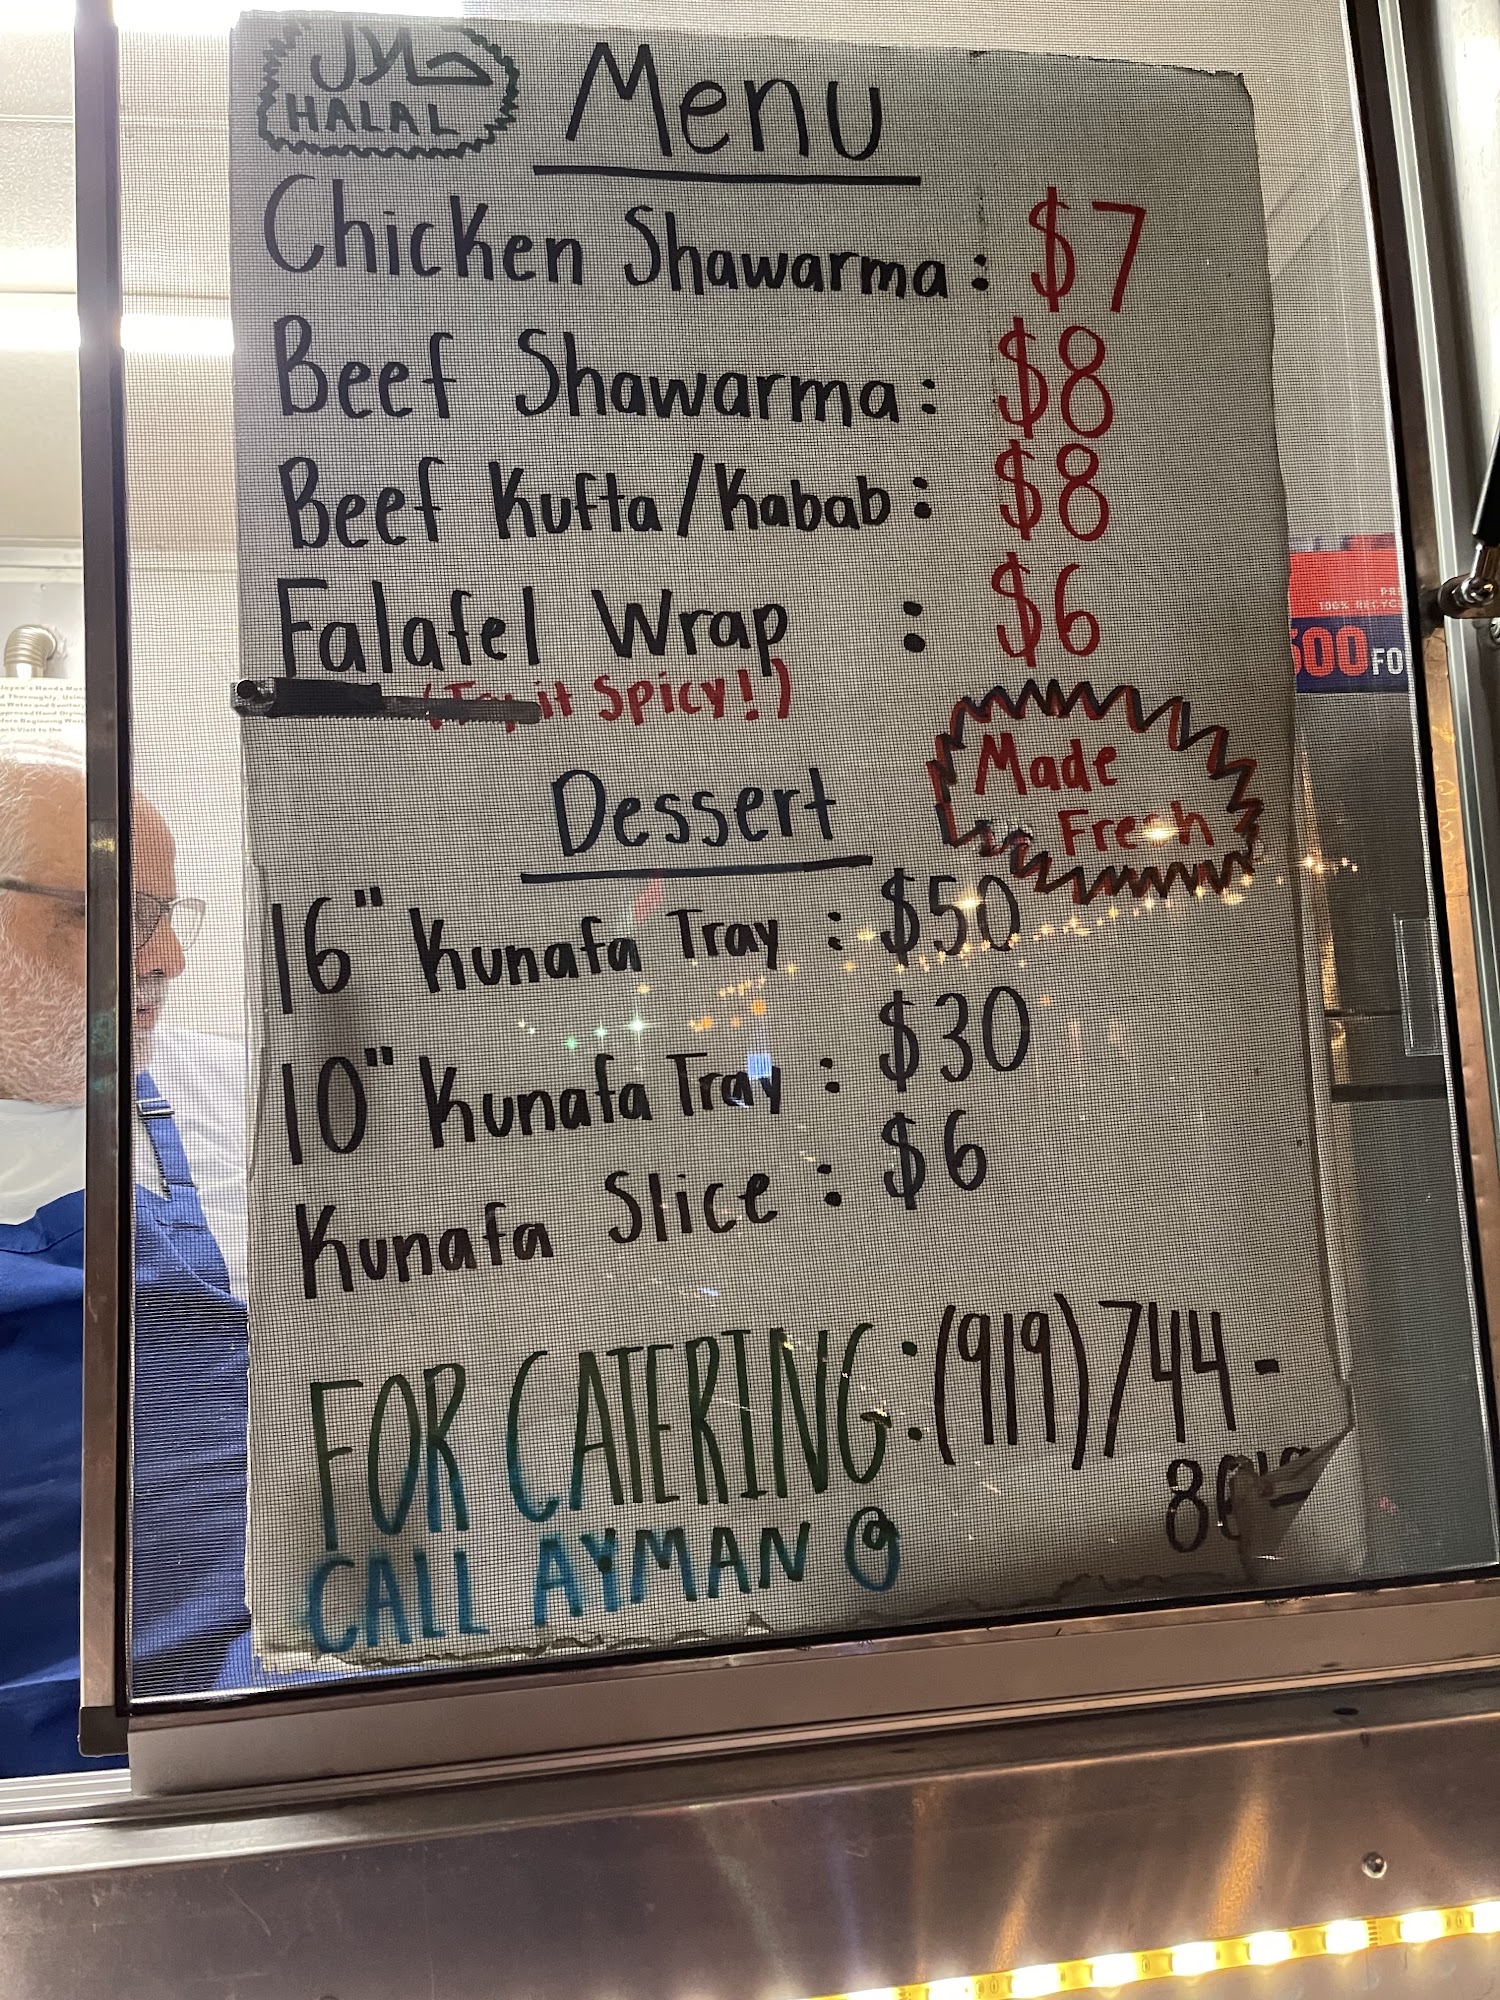 حلال
HALAL
Menu
Chicken Shawarma: $7
Beef Shawarma: $8
Beef Kufta/Kabab: $8
Falafel Wrap : $6
(Try it Spicy!)
Made
Fresh
Dessert
16" Kunafa Tray : $50
10" Kunafa Tray : $30
Kunafa Slice : $6
FOR CATERING: (919) 744-
CALL AYMAN @
500 FO